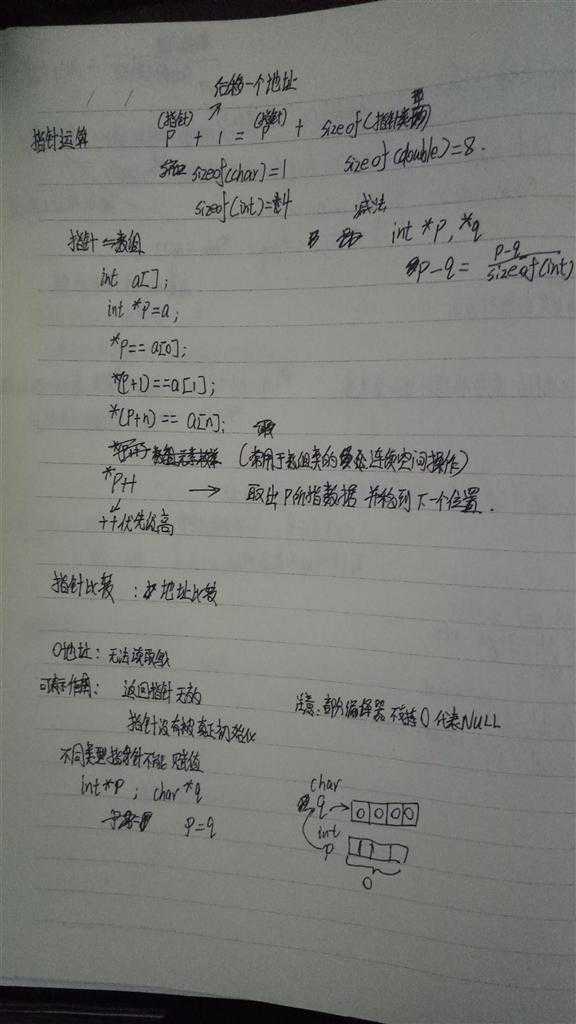 后移一个地址
(指针) (指针)
指针运算 P + 1 = P + sizeof(指针类型)
sizeof(char)=1 sizeof(double)=8.
sizeof(int)=4 减法
指针⇔数组 int *P, *q
P-q = p-q / sizeof(int)
int a[];
int *P=a;
*P==a[0];
*(P+1)==a[1];
*(P+n)==a[n];
(常用于数组类的连续空间操作)
*P++ → 取出P所指数据 并移到下一个位置.
++优先级高
指针比较 : 地址比较
0地址: 无法读取
返回指针无效 注意:部分编译器 不支持0代表NULL
指针没有被真正初始化
不同类型指针不能赋值
int *P ; char *q
P=q
char
q → 0 0 0 0
int
P
0